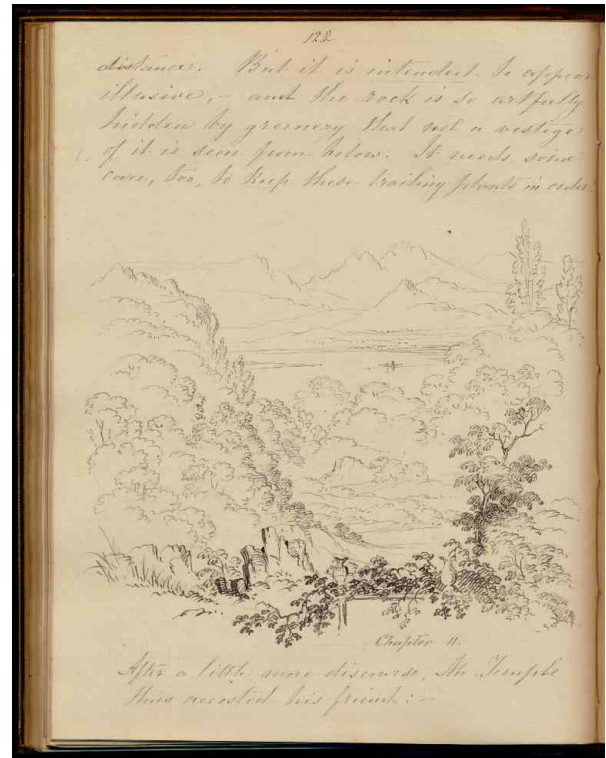 128
distance. But it is intended to appear
illusive, – and the rock is so artfully
hidden by greenery that not a vestige
of it is seen from below. It needs some
care, too, to keep these trailing plants in order
Chapter 11.
After a little more discourse, Mr Temple
thus accosted his friend : –